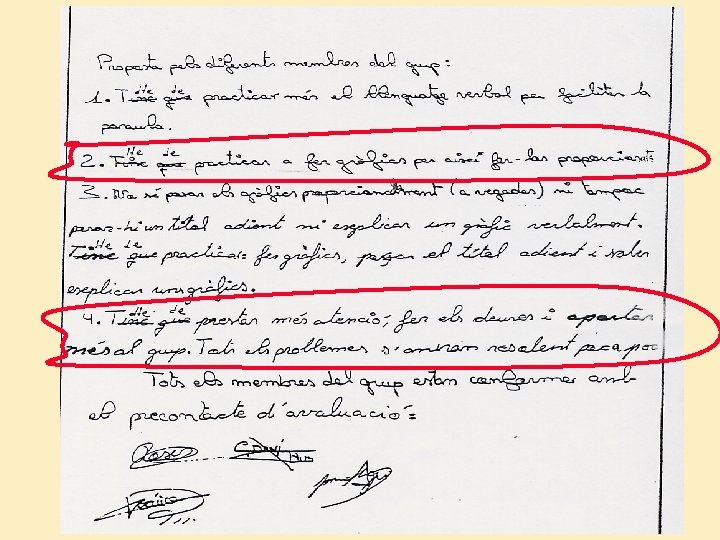 Proposta pels diferents membres del grup:
1. Tinc que He de practicar més el llenguatge verbal per facilitar la
paraula.
2. Tinc que He de practicar a fer gràfics per així fer-los proporcionats
3. No sé posar els gràfics proporcionalment (a vegades) ni tampoc
posar-hi un títol adient ni explicar un gràfic verbalment.
Tinc que He de practicar: fer gràfics, posar el títol adient i saber
explicar uns gràfics.
4. Tinc que He de prestar més atenció, fer els deures i aportar
més al grup. Tots els problemes s'aniran resolent poc a poc
Tots els membres del grup estan conformes amb
el precontacte d'avaluació: